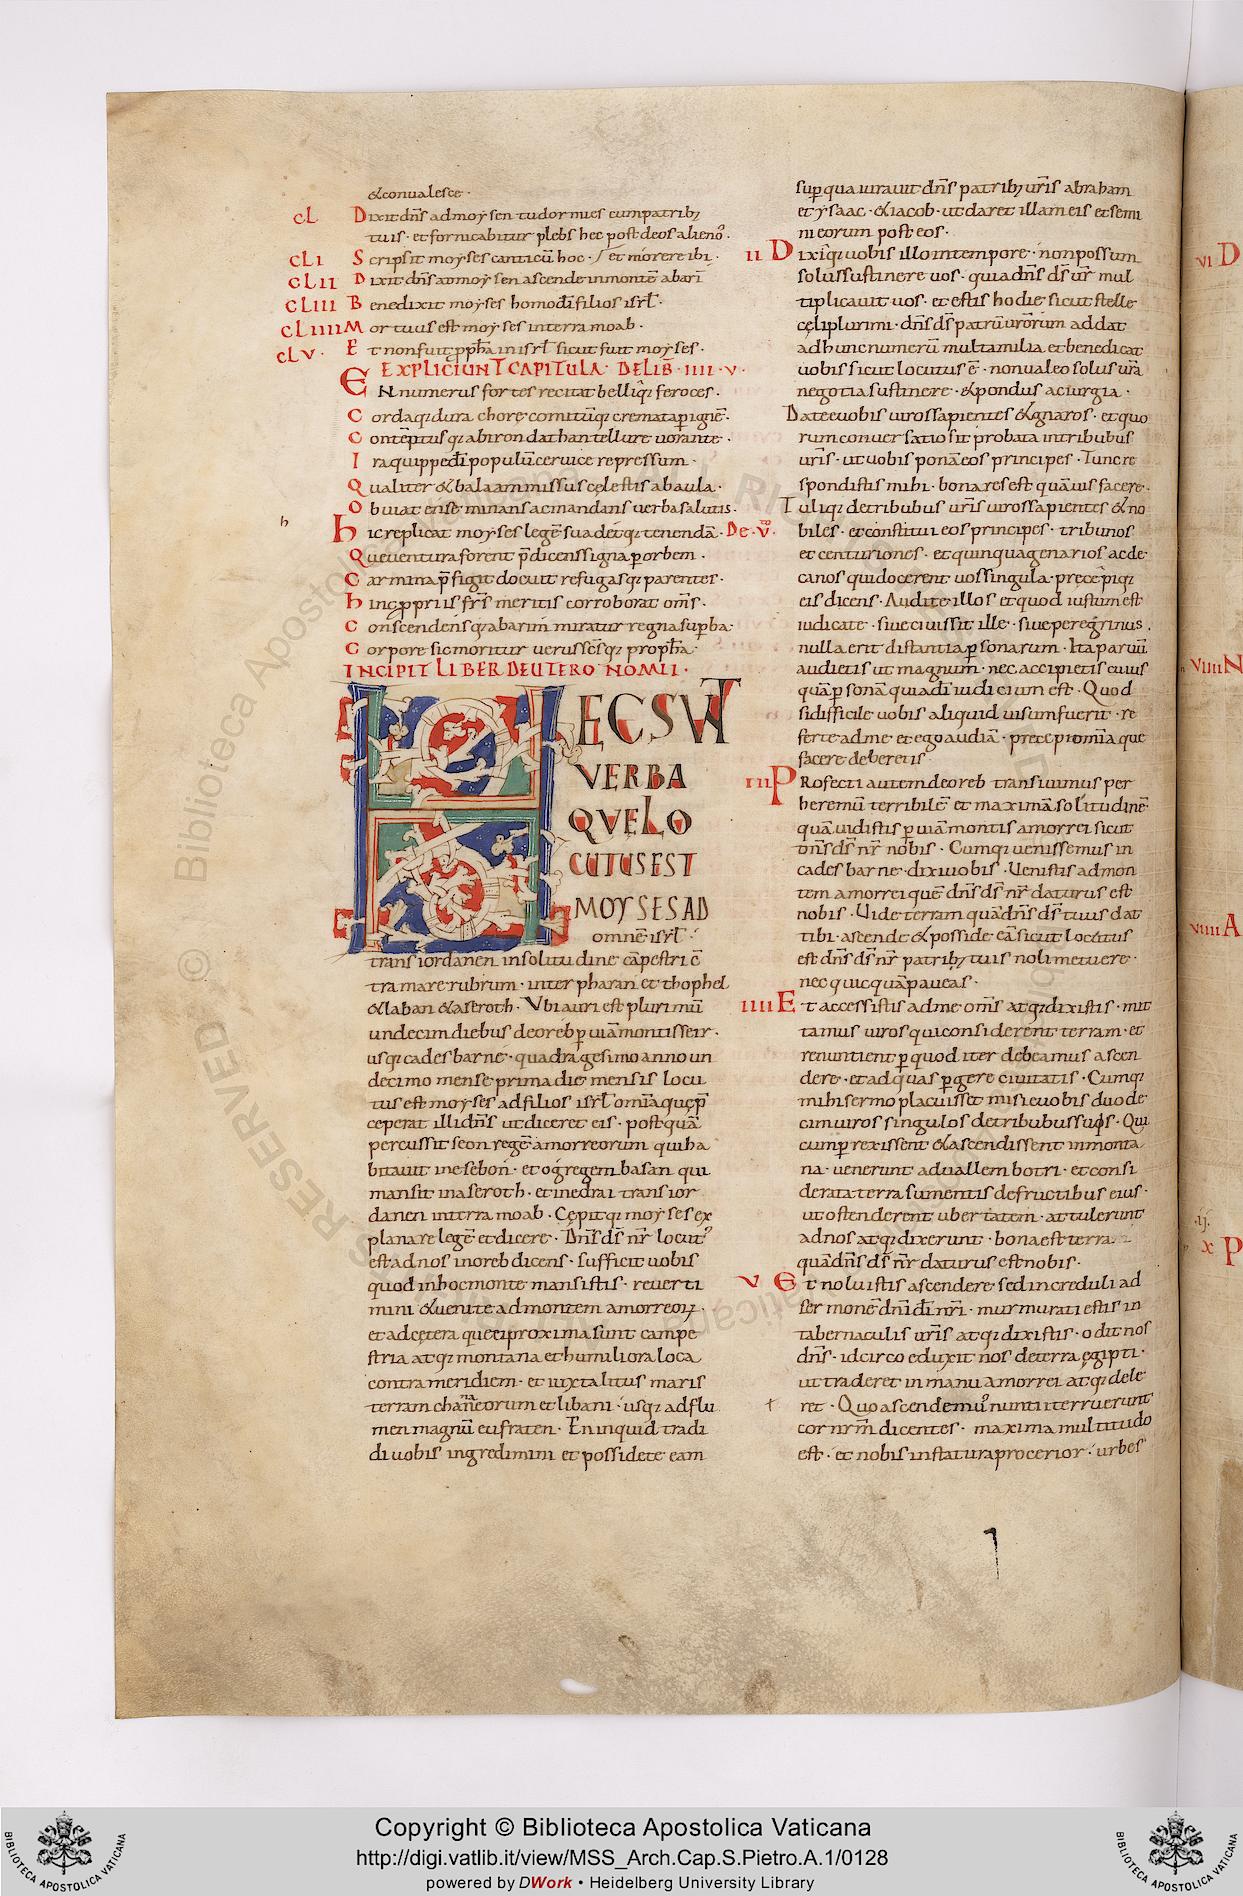 &conualesce ·
cL Dixit dn̄s ad moysen tu dormies cum patribꝫ
tuis · et fornicabitur plebs hec post deos alienoꝰ ·
cLI Scripsit moyses canticū hoc · / et morere ibi ·
cLII Dixit dn̄s ad moysen ascende in montē abarī
cLIII Benedixit moyses homo dī filios isrl̄ ·
cLIIII Mortuus est moyses in terra moab ·
cLV · Et non fuit ꝓph̄a in isrl̄ sicut fuit moyses ·
EXPLICIUNT CAPITULA · DE LIB̄ · IIII · V ·
EN numerus fortes recitat belliq; feroces ·
Cordaq; dura chore comitūq; cremata ꝑ ignē ·
Contēptus q; abiron dathan tellure uorante ·
Ira quippe dī populū ceruice repressum ·
Qualiter & balaam missus cęlestis ab aula ·
Obuiat ense minans ac mandans uerba salutis ·
h
Hic replicat moyses legē sua dei q; tenendā · De · v̄ ·
Que uentura forent p̄dicens signa ꝑ orbem ·
Carmina p̄figit docuit refugas q; parentes ·
Hinc ꝓpriis frs̄ meritis corroborat om̄s ·
Conscendens q; abarim miratur regna suꝑba ·
Corpore sic moritur uerus sensq; proph̄a ·
INCIPIT LIBER DEUTERONOMII ·
HEC SUNT
VERBA
QUE LO
CUTUS EST
MOYSES AD
omnē isrl̄ ·
trans iordanen in solitudine cāpestri c̄
tra mare rubrum · inter pharan et thophel
& laban & aseroth · Vbi auri est plurimū
undecim diebus de oreb ꝑ uiā montis seir ·
usq; cades barne · quadragesimo anno un
decimo mense prima die mensis locu
tus est moyses ad filios isrl̄ om̄ia quę p̄
ceperat illi dn̄s ut diceret eis · postquā
percussit seon regē amorreorum qui ha
bitauit in esebon · et og regem basan qui
mansit in aseroth · et in edrai trans ior
danen in terra moab · Cępitq; moyses ex
planare legē et dicere · Dn̄s ds̄ nr̄ locutꝰ
est ad nos in oreb dicens · sufficit uobis
quod in hoc monte mansistis · reuerti
mini & uenite ad montem amorreoꝝ ·
et ad cętera que ei proxima sunt campe
stria atq; montana et humiliora loca
contra meridiem · et iuxta litus maris
terram chananeorum et libani · usq; ad flu
men magnū eufraten · En inquid tradi
di uobis ingredimini et possidete eam
suꝑ qua iurauit dn̄s patribꝫ ur̄is abraham
et ysaac · & iacob · ut daret illam eis et semi
ni eorum post eos ·
II Dixiq; uobis illo in tempore · non possum
solus sustinere uos · quia dn̄s ds̄ ur̄ mul
tiplicauit uos · et estis hodie sicut stelle
cęli plurimi · dn̄s ds̄ patrū ur̄orum addat
ad hunc numerū multa milia et benedicat
uobis sicut locutus ē · non ualeo solus ur̄a
negotia sustinere · & pondus ac iurgia ·
Date e uobis uiros sapientes & gnaros · et quo
rum conuersatio sit probata in tribubus
ur̄is · ut uobis ponā eos principes · Tunc re
spondistis mihi · bona res est quā uis facere ·
Tuliq; de tribubus ur̄is uiros sapientes & no
biles · et constitui eos principes · tribunos
et centuriones · et quinquagenarios ac de
canos qui docerent uos singula · precepiq;
eis dicens · Audite illos et quod iustum est
iudicate · siue ciuis sit ille · siue peregrinus ·
nulla erit distantia ꝑsonarum · Ita paruū
audietis ut magnum · nec accipietis cuius
quā ꝑsonā quia dī iudicium est · Quod
si difficile uobis aliquid uisum fuerit · re
ferte ad me et ego audiā · precepi om̄ia que
facere deberetis
III Profecti autem de oreb transiuimus per
heremū terribilē et maximā solitudinē
quā uidistis ꝑ uiā montis amorrei sicut
dn̄s ds̄ nr̄ nobis · Cumq; uenissemus in
cades barne · dixi uobis · Uenistis ad mon
tem amorrei quē dn̄s ds̄ nr̄ daturus est
nobis · Uide terram quā dn̄s ds̄ tuus dat
tibi · ascende & posside eā sicut locutus
est dn̄s ds̄ nr̄ patribꝫ tuis noli metuere ·
nec quicquā paueas ·
IIII Et accessistis ad me om̄s atq; dixistis · mit
tamus uiros qui considerent terram · et
renuntient ꝑ quod iter debeamus ascen
dere · et ad quas ꝑgere ciuitatis · Cumq;
mihi sermo placuisset misi e uobis duode
cim uiros singulos de tribubus suis · Qui
cum ꝑrexissent & ascendissent in monta
na · uenerunt ad uallem botri · et consi
derata terra sumentis de fructibus eius ·
ut ostenderent ubertatem · attulerunt
ad nos atq; dixerunt · bona est terra ·
quā dn̄s ds̄ nr̄ daturus est nobis ·
V Et noluistis ascendere sed increduli ad
sermonē dn̄i dī nr̄i · murmurati estis in
tabernaculis ur̄is atq; dixistis · odit nos
dn̄s · idcirco eduxit nos de terra ęgipti ·
ut traderet in manu amorrei atq; dele
ret · Quo ascendemuꝰ nuntii terruerunt
cor nr̄m dicentes · maxima multitudo
est · et nobis in statura procerior · urbes
VI D
VIIII N
VIIII A
.ij.
X P
Copyright © Biblioteca Apostolica Vaticana
http://digi.vatlib.it/view/MSS_Arch.Cap.S.Pietro.A.1/0128
powered by DWork • Heidelberg University Library
BIBLIOTECA APOSTOLICA VATICANA
BIBLIOTECA APOSTOLICA VATICANA